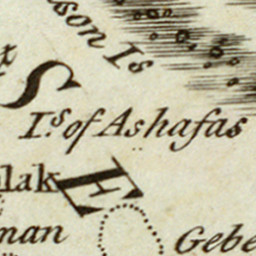 son Is
S
I.s of Ashafas
lak
E
man
Gebe